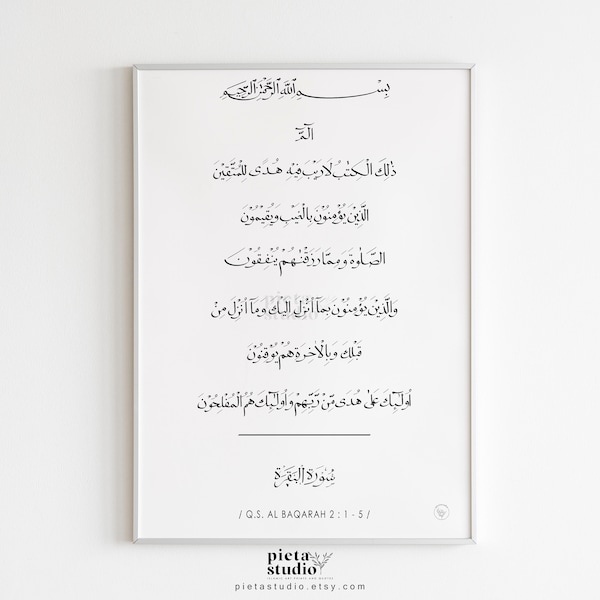 بِسْمِ اللّٰهِ الرَّحْمٰنِ الرَّحِيْمِ
الٓمّٓ
ذٰلِكَ الْكِتٰبُ لَا رَيْبَ فِيْهِ هُدًى لِّلْمُتَّقِيْنَ
الَّذِيْنَ يُؤْمِنُوْنَ بِالْغَيْبِ وَيُقِيْمُوْنَ
الصَّلٰوةَ وَمِمَّا رَزَقْنٰهُمْ يُنْفِقُوْنَ
وَالَّذِيْنَ يُؤْمِنُوْنَ بِمَآ اُنْزِلَ اِلَيْكَ وَمَآ اُنْزِلَ مِنْ
قَبْلِكَ وَبِالْاٰخِرَةِ هُمْ يُوْقِنُوْنَ
اُولٰۤىِٕكَ عَلٰى هُدًى مِّنْ رَّبِّهِمْ وَاُولٰۤىِٕكَ هُمُ الْمُفْلِحُوْنَ
سُوْرَةُ الْبَقَرَةِ
/ Q.S. AL BAQARAH 2 : 1 - 5 /
pieta
studio
ISLAMIC ART PRINTS AND QUOTES
pietastudio.etsy.com